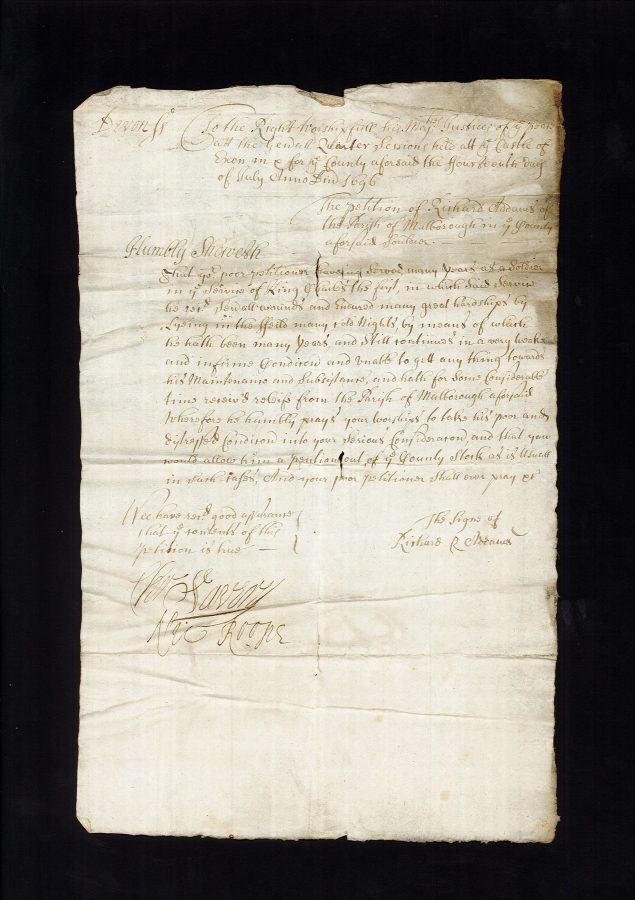 Devon ss To the Right Worshipfull his Majties Justices of ye peace
att the Genall Quarter Sessions held att ye Castle of
Exon in & for ye County aforsaid the ffourteenth day
of July Anno Dni 1696
The petition of Richard Addams of
the Parish of Malborough in ye County
aforsaid Souldier
Humbly Sheweth
That yor poor petitioner haveing served many years as a Soldier
in ye Service of King Charles the first, in which said Service
he recd sevall wounds and Endured many great hardships by
Lyeing in the ffeild many cold Nights by means of which
he hath been many years and still continues in a very weake
and infirme Condicon and unable to gett any thing towards
his Maintenance and Subsistance, and hath for some Considerable
time receiv'd releife from the Parish of Malborough aforsaid
Wherefore he humbly prays your worships to take his poor and
distressed Condicon into your Serious Consideracon, and that you
would allow him a pention out of ye County Stock as is Usuall
in such cases, And your poor petitioner shall ever pray &c
Wee have recd good assurance
that ye contents of this
petition is true
The Signe of
Richard R Addams
Ni: Roope